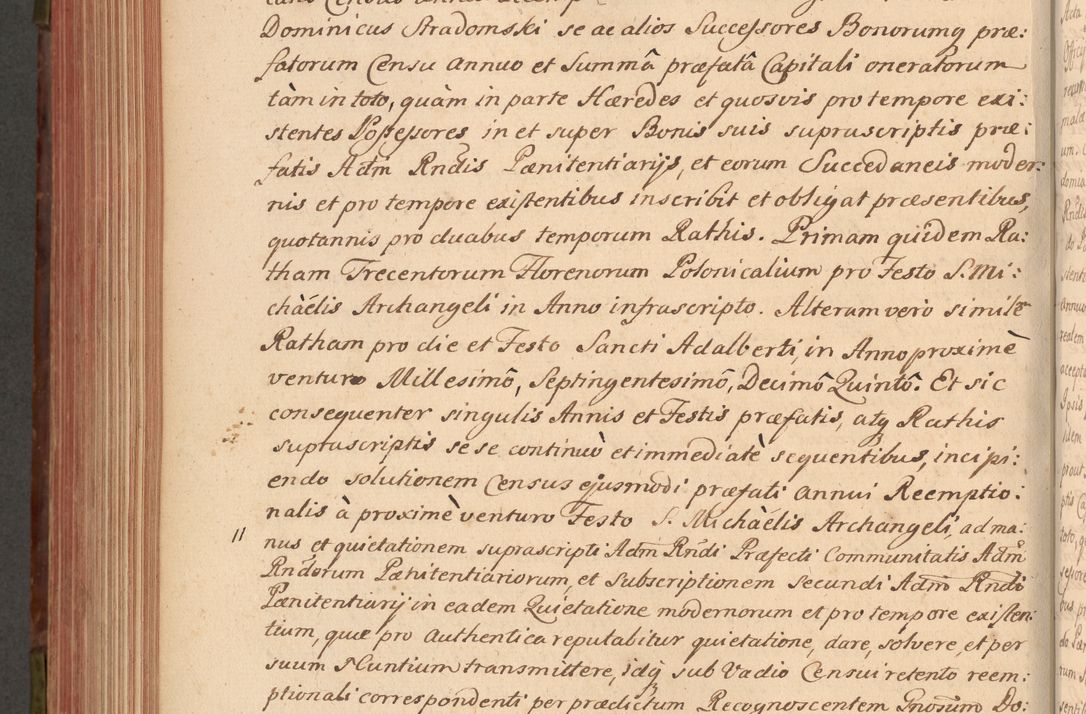 Dominicus Stradomski se ac alios Successores Bonorumq præ:
fatorum Censu Annuo et Summâ præfatâ Capitali oneratorum
tàm in toto, quàm in parte Hæredes et quosvis pro tempore exi:
stentes Possessores in et super Bonis suis supruscriptis præ:
fatis Adm Rndis Pænitentiarijs, et eorum Succedaneis moder:
nis et pro tempore existentibus inscribit et obligat præsentibus,
quotannis pro duabus temporum Rathis. Primam quidem Ra:
tham Trecentorum Florenorum Polonicalium pro Festo S. Mi:
chäélis Archangeli in Anno infrascripto. Alteram vero similē
Ratham pro die et Festo Sancti Adalberti, in Anno proximè
venturo Millesimô, Septingentesimô, Decimô Quintô. Et sic
consequenter singulis Annis et Festis præfatis, atq Rathis
supruscriptis se se continuò et immediatè sequentibus, incipi:
endo solutionem Census ejusmodi præfati Annui Reemptio:
nalis à proximè venturo Festo S. Michäélis Archangeli, ad ma:
11
nus et quietationem suprascripti Adm Rndi Præfecti Communitatis Adm
Rndorum Pænitentiariorum, et Subscriptionem Secundi Adm Rndi
Pænitentiarij in eadem Quietatione modernorum et pro tempore existen:
tium, quæ pro Authentica reputabitur quietatione, dare, solvere, et per
suum Nuntium transmittere, idq sub Vadio Censui retento reem:
ptionali correspondenti per prædictum Recognoscentem Gnosum Do: